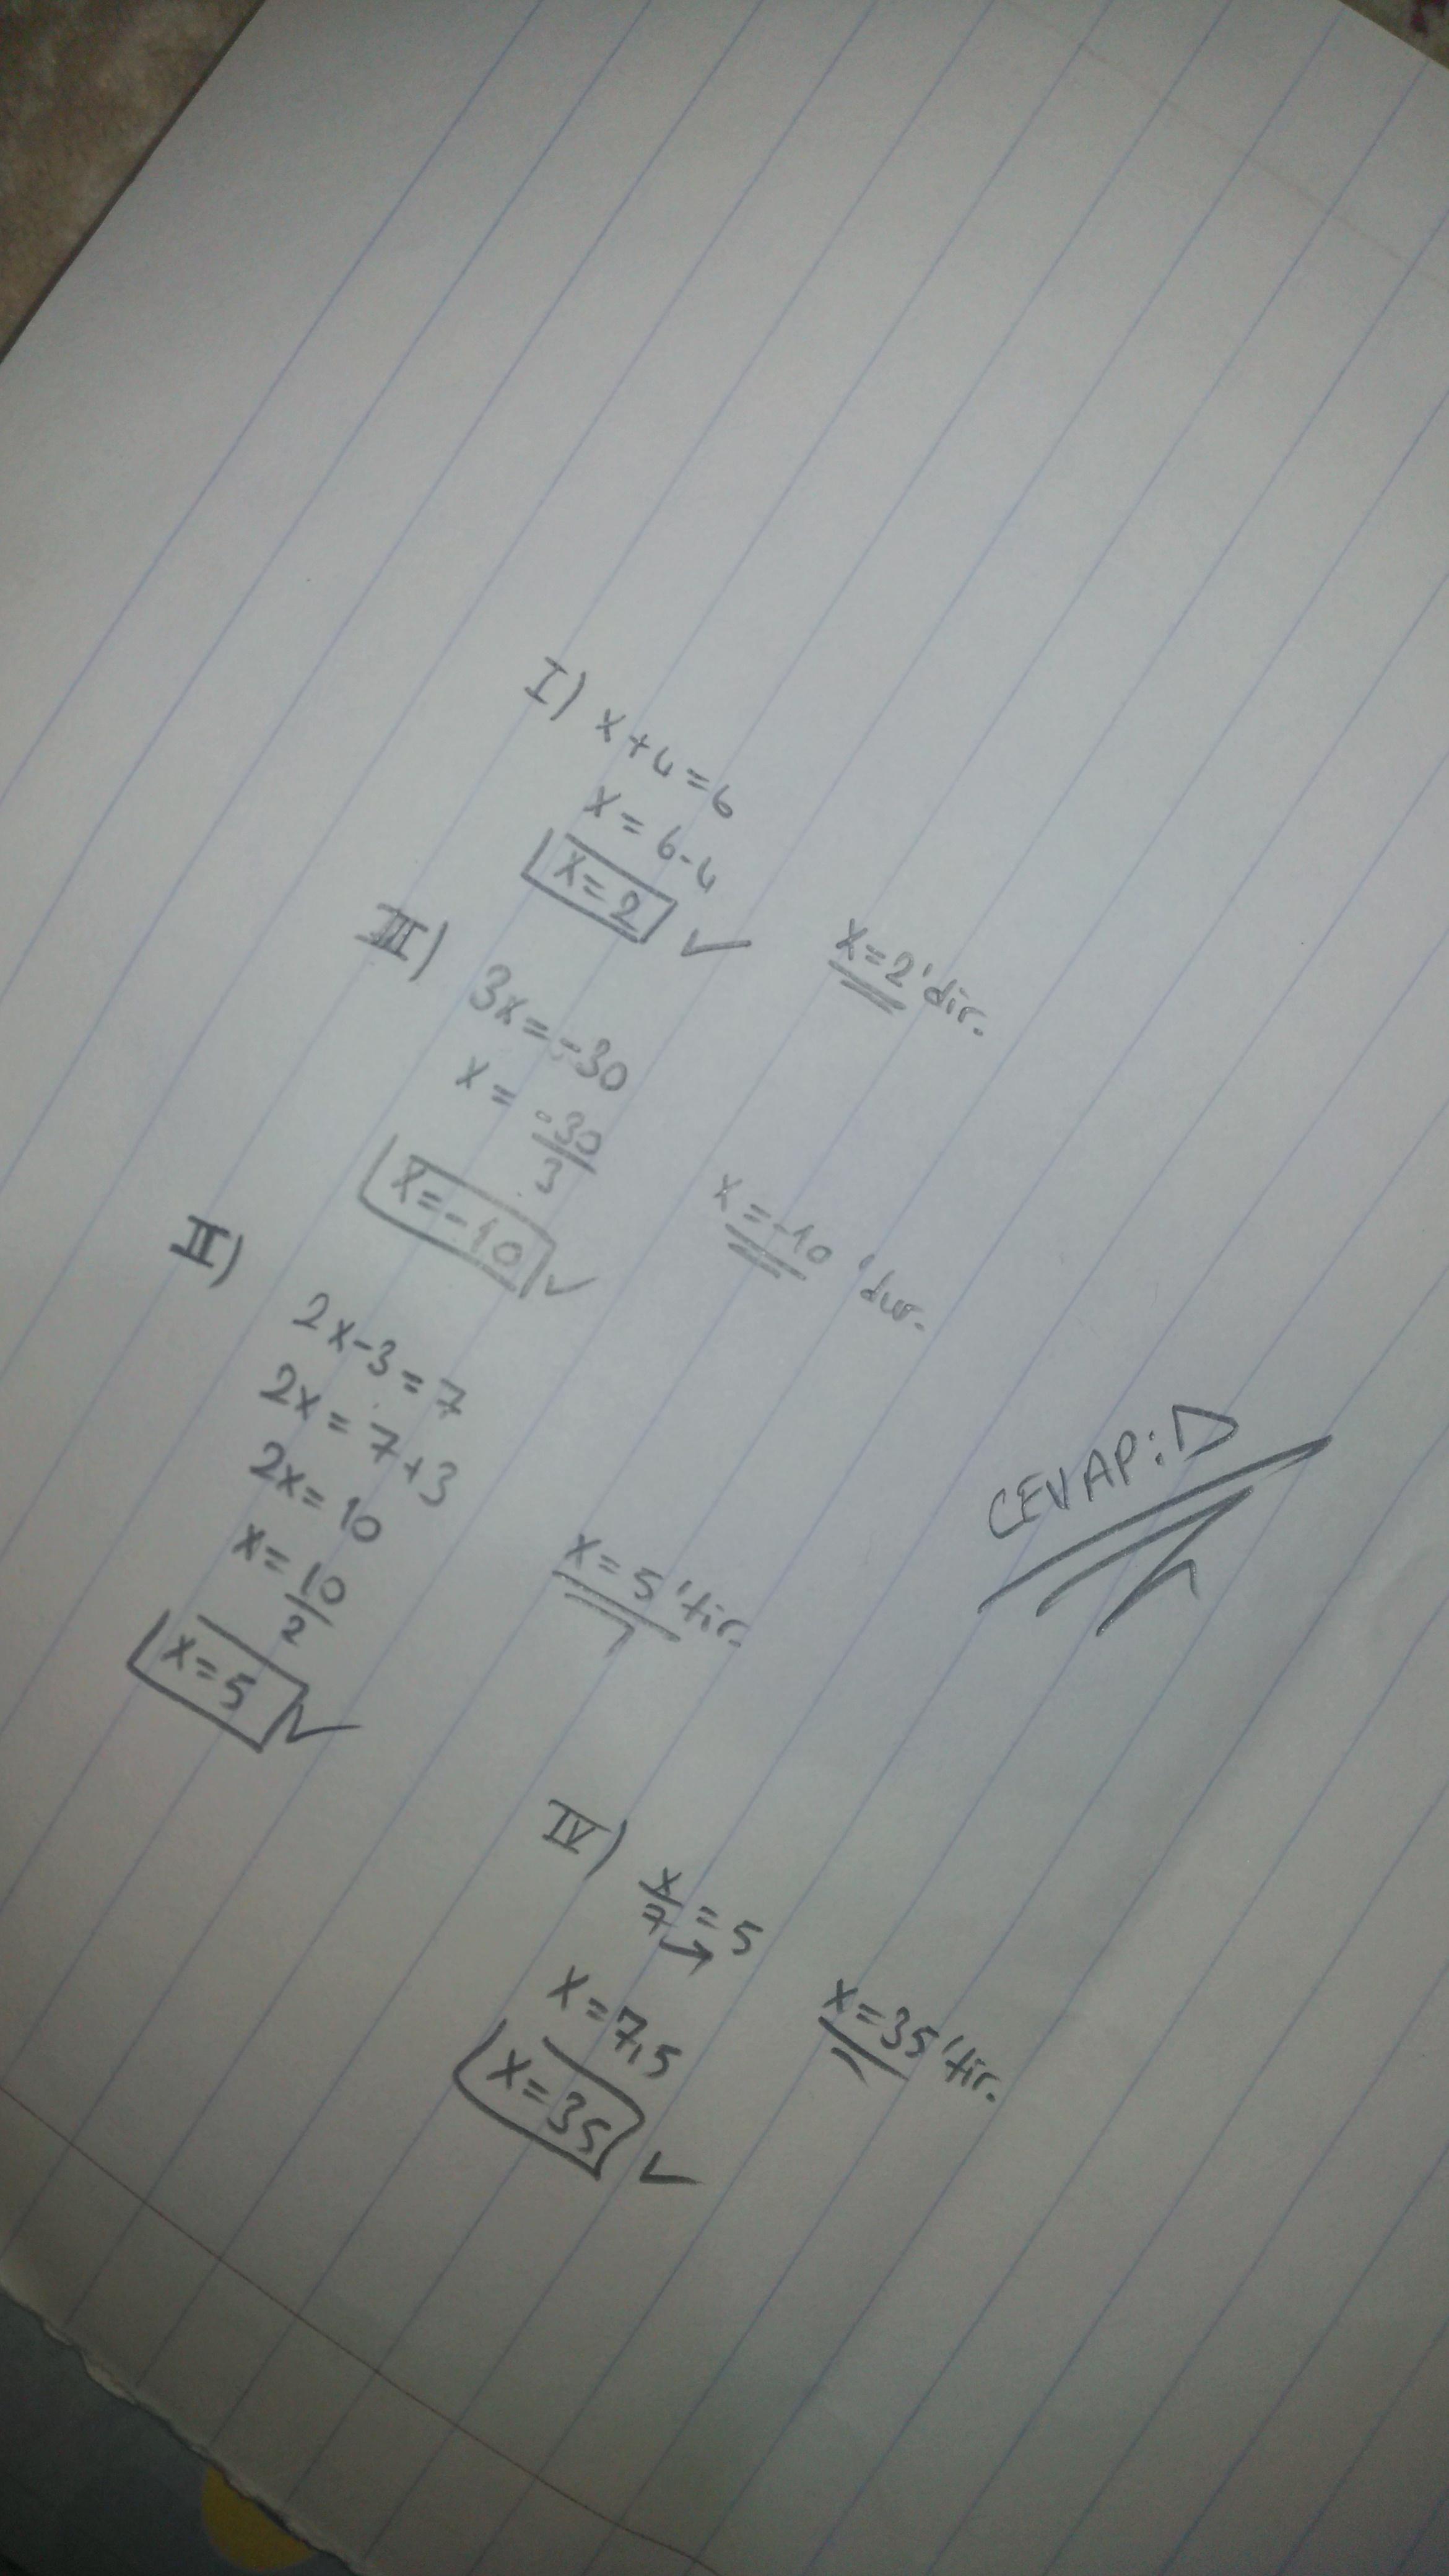 I) x+4=6
x=6-4
x=2
x=2'dir.
III) 3x=-30
x=-30/3
x=-10
x=-10'dur.
II)
2x-3=7
2x=7+3
2x=10
x=10/2
x=5
x=5'tir.
CEVAP:D
IV) x/7=5
x=7.5
x=35
x=35'tir.